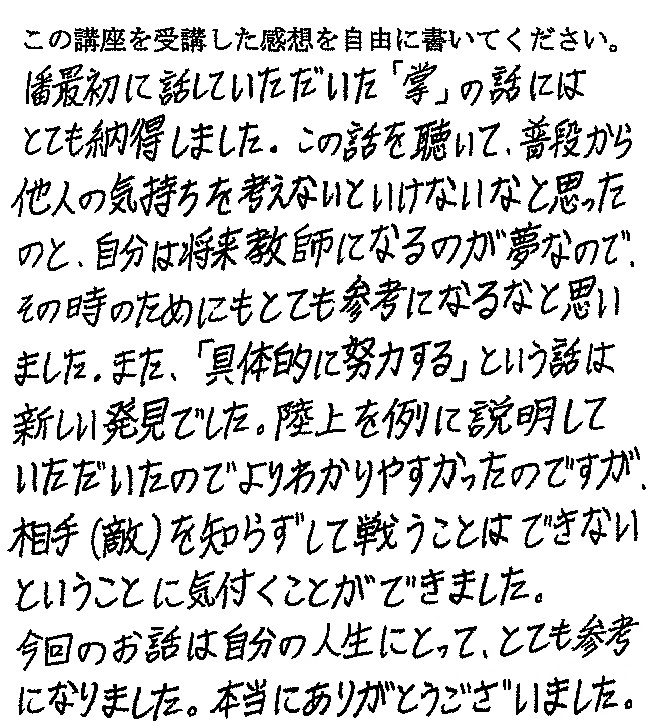 この講座を受講した感想を自由に書いてください。
1番最初に話していただいた「掌」の話には
とても納得しました。この話を聴いて、普段から
他人の気持ちを考えないといけないなと思った
のと、自分は将来教師になるのが夢なので、
その時のためにもとても参考になるなと思い
ました。また、「具体的に努力する」という話は
新しい発見でした。陸上を例に説明して
いただいたのでよりわかりやすかったのですが、
相手(敵)を知らずして戦うことはできない
ということに気付くことができました。
今回のお話は自分の人生にとって、とても参考
になりました。本当にありがとうございました。